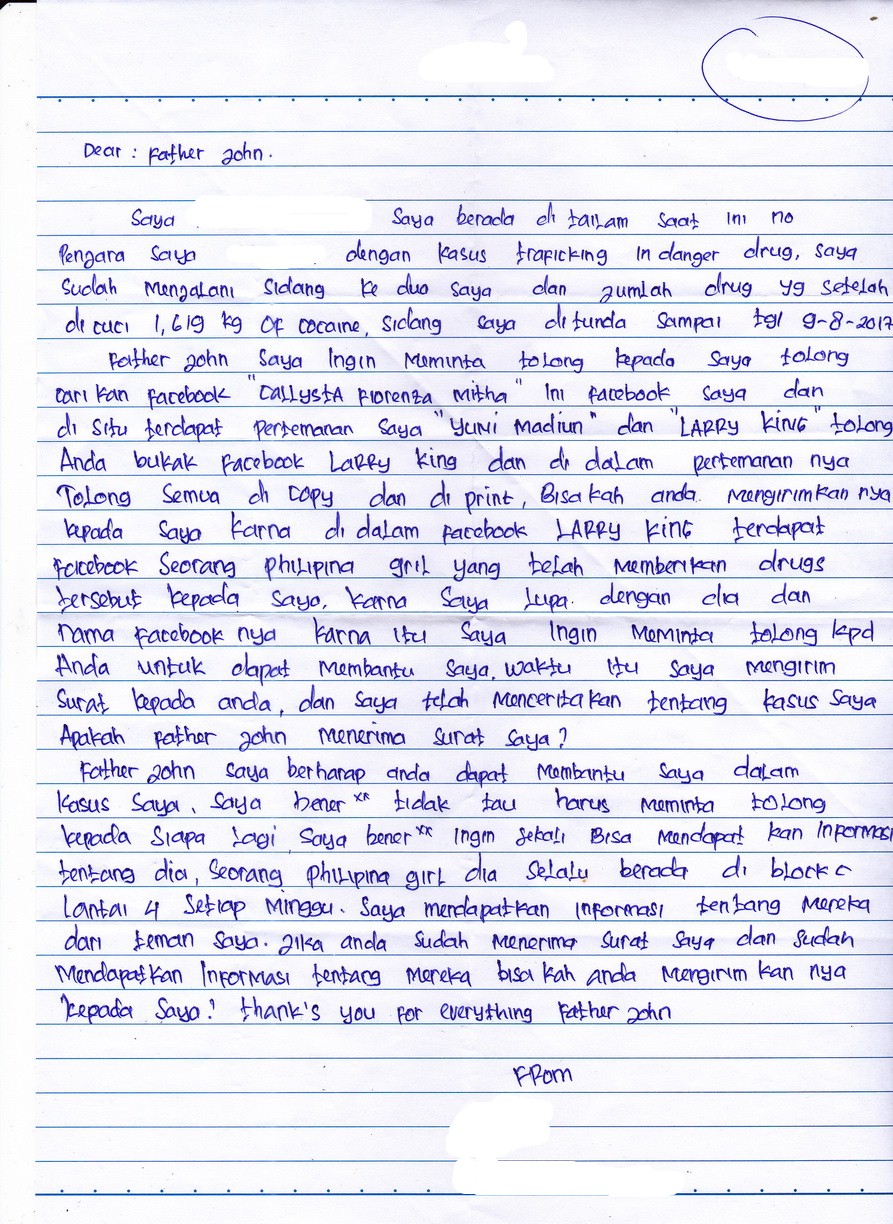 Dear : Father John.
Saya Saya berada di tailam saat ini no
Pengara saya dengan kasus traficking in danger drug, saya
sudah Mengalani Sidang ke duo saya dan jumlah drug yg setelah
di cuci 1,619 kg OF cocaine, sidang saya di tunda sampai tgl 9-8-2017
Father John saya Ingin Meminta tolong kepada saya tolong
cari kan facebook "CALLYSTA Fiorenza Mitha" Ini Facebook saya dan
di situ terdapat pertemanan saya "YUNI Madiun" dan "LARRY KING" tolong
Anda bukak Facebook LARRY king dan di dalam pertemanan nya
Tolong Semua di copy dan di print, Bisa kah anda. Mengirimkan nya
kepada saya karna di dalam facebook LARRY KING terdapat
facebook Seorang philipina gril yang telah memberikan drugs
tersebut kepada saya, karna saya lupa. dengan dia dan
nama facebook nya karna itu saya Ingin Meminta tolong kpd
Anda untuk dapat Membantu saya, waktu itu saya mengirim
surat kepada anda, dan saya telah Menceritakan tentang kasus saya
Apakah Father John Menerima surat saya?
Father John saya berharap anda dapat Membantu saya dalam
kasus saya, saya bener xx tidak tau harus meminta tolong
kepada siapa lagi, Saya bener xx Ingin sekali Bisa Mendapat kan Informasi
tentang dia, Seorang philipina girl dia Selalu berada di block c
Lantai 4 Setiap Minggu. Saya mendapatkan Informasi tentang Mereka
dari teman saya. Jika anda sudah Menerima surat saya dan sudah
Mendapatkan Informasi tentang Mereka bisa kah anda Mengirim kan nya
kepada saya? thank's you for everything Father John
From